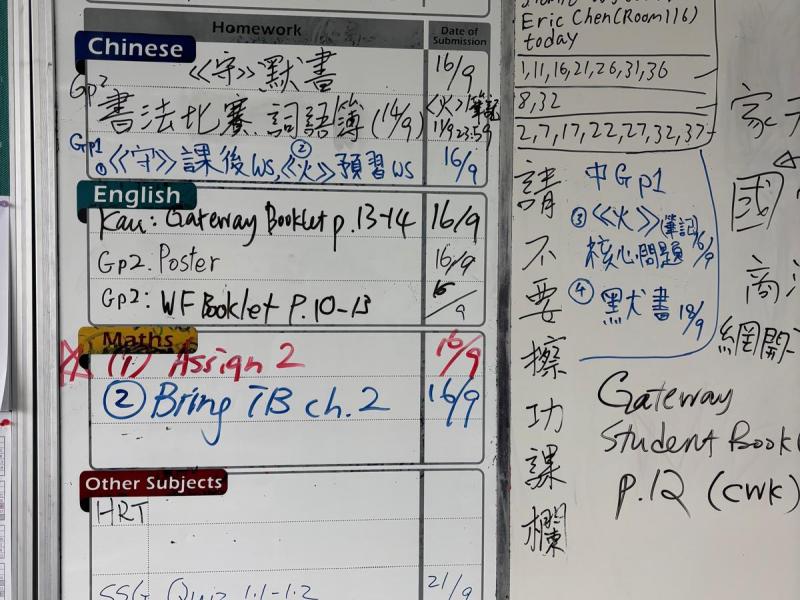 Homework
Date of Submission
Chinese
Gp2
《守》默書
16/9
書法比賽、詞語簿(14/9)
《火》筆記
Gp1
①《守》課後WS,②《火》預習WS
16/9
English
Kau: Gateway Booklet p.13-14
16/9
Gp2. Poster
16/9
Gp2: WF Booklet P.10-13
16/9
Maths
(1) Assign 2
16/9
② Bring TB ch.2
16/9
Other Subjects
HRT
SSG Quiz 1.1-1.2
21/9
Eric Chen (Room 116)
today
1,11,16,21,26,31,36
8,32
2,7,17,22,27,32,37
請不要擦功課欄
中Gp1
③《火》筆記
核心問題 16/9
④ 默書 18/9
Gateway
Student Book
p.12 (cwk)
家
國
商
網開